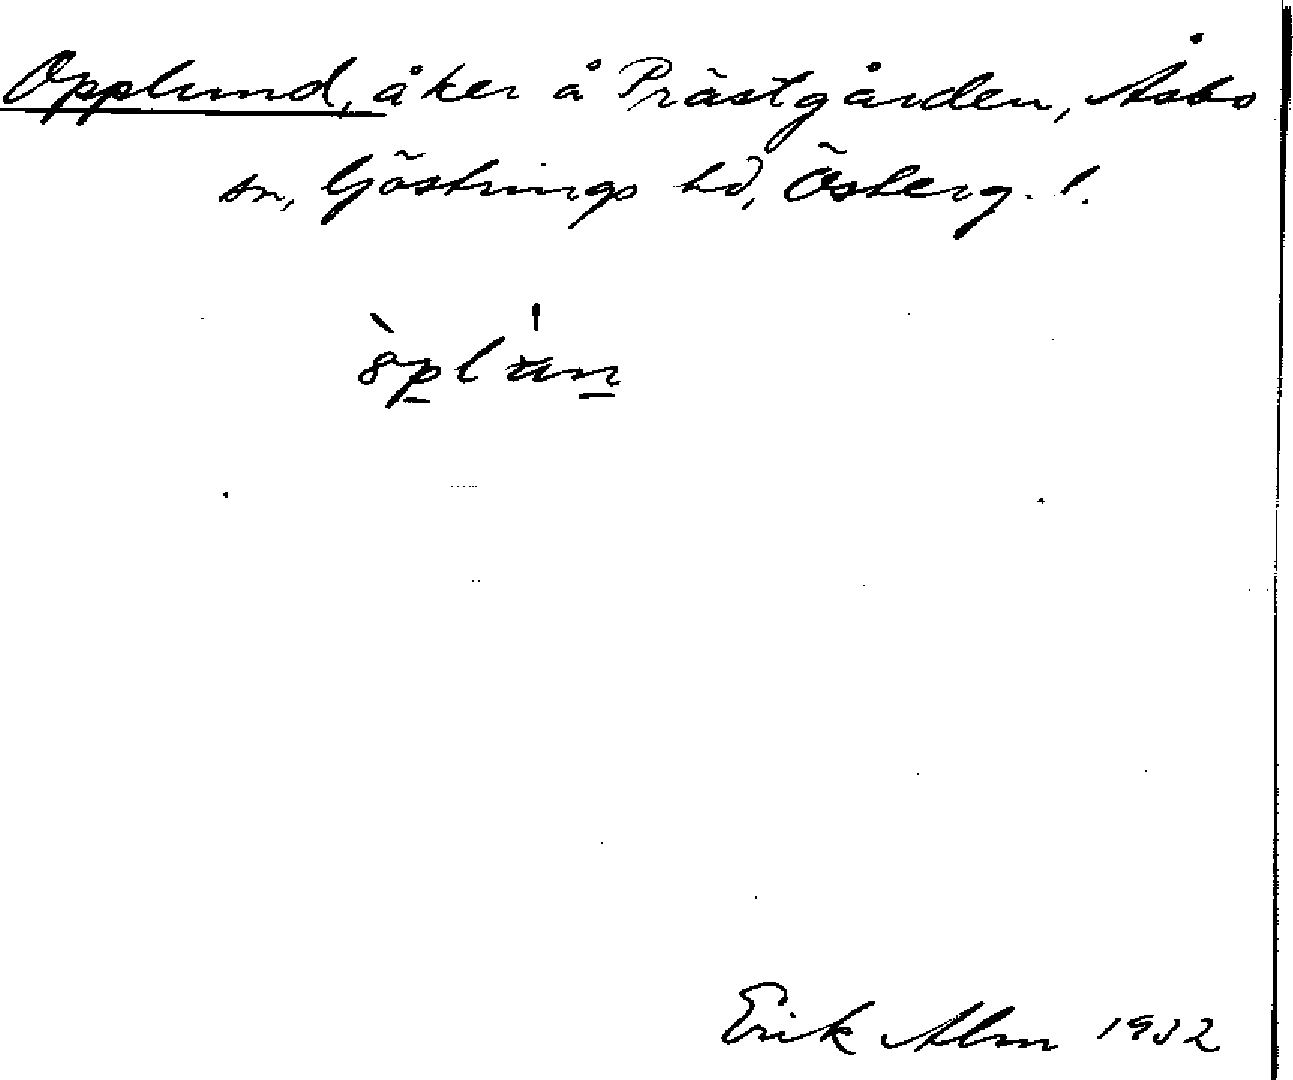 Opplund, åker å Prästgården, Åsbo
sn, Göstrings hd, Österg. l.
Erik Alm 1932